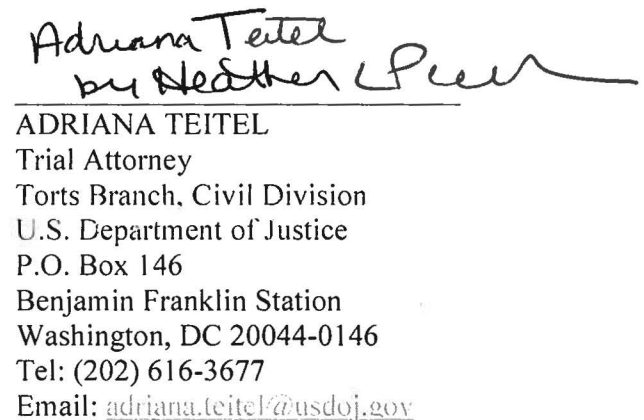 Adriana Teitel
by Heather
ADRIANA TEITEL
Trial Attorney
Torts Branch, Civil Division
U.S. Department of Justice
P.O. Box 146
Benjamin Franklin Station
Washington, DC 20044-0146
Tel: (202) 616-3677
Email: adriana.teitel@usdoj.gov